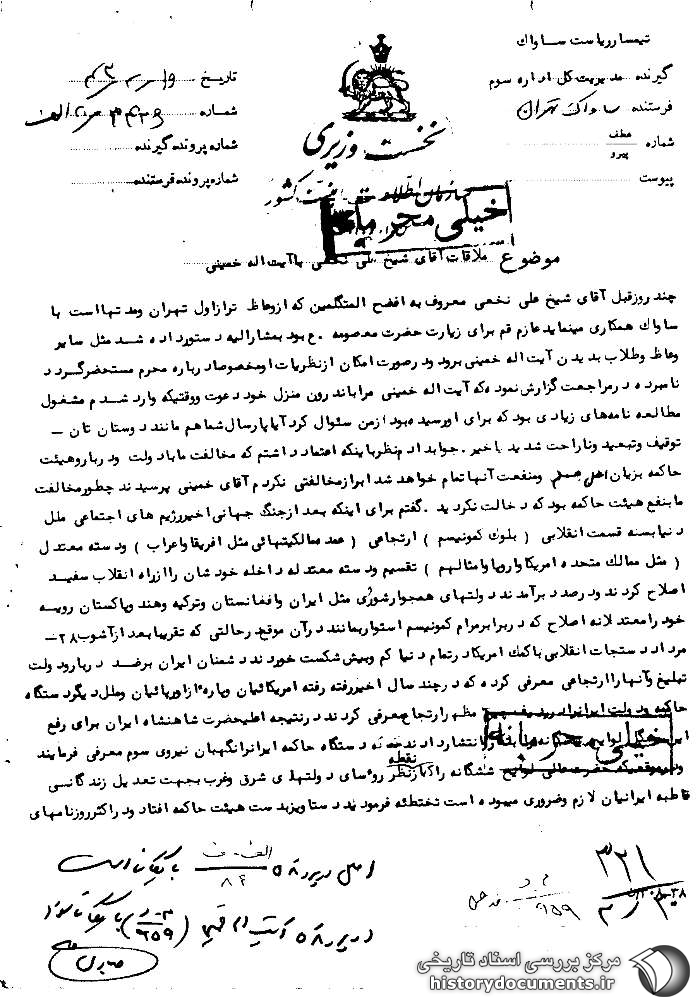 تیمسار ریاست ساواک
گیرنده مدیریت کل اداره سوم
فرستنده ساواک تهران
شماره عطف
پیرو
پیوست
نخست وزیری
سازمان اطلاعات و امنیت کشور
تاریخ
شماره الف
شماره پرونده گیرنده
شماره پرونده فرستنده
خیلی محرمانه
موضوع ملاقات آقای شیخ علی نخعی با آیت اله خمینی
چند روز قبل آقای شیخ علی نخعی معروف به افضح المتگلمین که از وعاظ تراز اول تهران و مدتها است با
ساواک همکاری مینماید عازم قم برای زیارت حضرت معصومه ع بود بمشارالیه دستور داده شد مثل سایر
وعاظ و طلاب بدیدن آیت اله خمینی برود و در صورت امکان از نظریات او مخصوصا درباره محرم مستحضر گردد
نامبرده در مراجعت گزارش نموده که آیت اله خمینی مرا باندرون منزل خود دعوت و وقتیکه وارد شدم مشغول
مطالعه نامه‌های زیادی بود که برای او رسیده بود از من سئوال کرد آیا پارسال شما هم مانند دوستان تان –
توقیف و تبعید و ناراحت شدید یا خیر. جواب دادم نظر باینکه اعتماد داشتم که مخالفت ما با دولت و دربار و هیئت
حاکمه بزیان و منفعت آنها تمام خواهد شد ابراز مخالفتی نکردم آقای خمینی پرسیدند چطور مخالفت
ما بنفع هیئت حاکمه بود که دخالت نکردید. گفتم برای اینکه بعد از جنگ جهانی اخیر رژیم های اجتماعی ملل
دنیا بسه قسمت انقلابی ( بلوک کمونیسم ) ارتجاعی ( عمده مالکیتهائی مثل افریقا و اعراب ) و دسته معتدل
( مثل ممالک متحده امریکا و اروپا و امثالهم ) تقسیم و دسته معتدله داخله خودشان را از راه انقلاب سفید
اصلاح کردند و در صدد برآمدند دولتهای همجوار شوروی مثل ایران و افغانستان و ترکیه و هند و پاکستان رویه
خود را معتدلانه اصلاح که در برابر مرام کمونیسم استوار بمانند در آن موقع در حالتی که تقریبا بعد از آشوب ۲۸–
مرداد دستجات انقلابی با کمک امریکا در تمام دنیا کم و بیش شکست خوردند دشمنان ایران بر ضد دربار و دولت
تبلیغ و آنها را ارتجاعی معرفی کرده که در چند سال اخیر رفته رفته امریکائیان و پاره از اروپائیان و ملل دیگر دستگاه
حاکمه و دولت ایران را مظهر ارتجاع معرفی کردند در نتیجه اعلیحضرت شاهنشاه ایران برای رفع
انتشار دادند دستگاه حاکمه ایران را نگهبان نیروی سوم معرفی فرمایند
خیلی محرمانه
ششگانه را که از نقطه نظر روسای دولتهای شرق و غرب بجهت تعدیل زندگانی
قاطبه ایرانیان لازم و ضروری میبوده است تخطئه فرمودند دستاویز بدست هیئت حاکمه افتاد و در اکثر روزنامهای
۳۲۱
۶۵۹
اصل در پرونده الف - ف / ۸۴ بایگانی است
مرکز بررسی اسناد تاریخی
historydocuments.ir